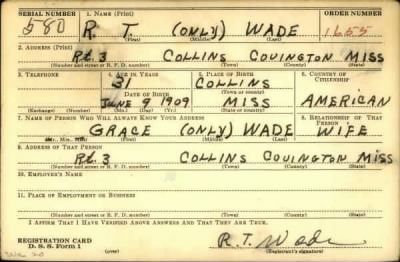 SERIAL NUMBER 1. NAME (Print) ORDER NUMBER
580 R. T. (ONLY) WADE 1655
(First) (Middle) (Last)
2. ADDRESS (Print)
Rt. 3 COLLINS COVINGTON MISS
(Number and street or R. F. D. number) (Town) (County) (State)
3. TELEPHONE 4. AGE IN YEARS 5. PLACE OF BIRTH 6. COUNTRY OF CITIZENSHIP
31 COLLINS
DATE OF BIRTH (Town or county)
JUNE 9 1909 MISS AMERICAN
(Exchange) (Number) (Mo.) (Day) (Yr.) (State or country)
7. NAME OF PERSON WHO WILL ALWAYS KNOW YOUR ADDRESS 8. RELATIONSHIP OF THAT PERSON
GRACE (ONLY) WADE WIFE
(First) (Middle) (Last)
9. ADDRESS OF THAT PERSON
Rt. 3 COLLINS COVINGTON MISS
(Number and street or R. F. D. number) (Town) (County) (State)
10. EMPLOYER'S NAME
11. PLACE OF EMPLOYMENT OR BUSINESS
(Number and street or R. F. D. number) (Town) (County) (State)
I AFFIRM THAT I HAVE VERIFIED ABOVE ANSWERS AND THAT THEY ARE TRUE.
REGISTRATION CARD
D. S. S. Form 1 R. T. Wade
(Registrant's signature)